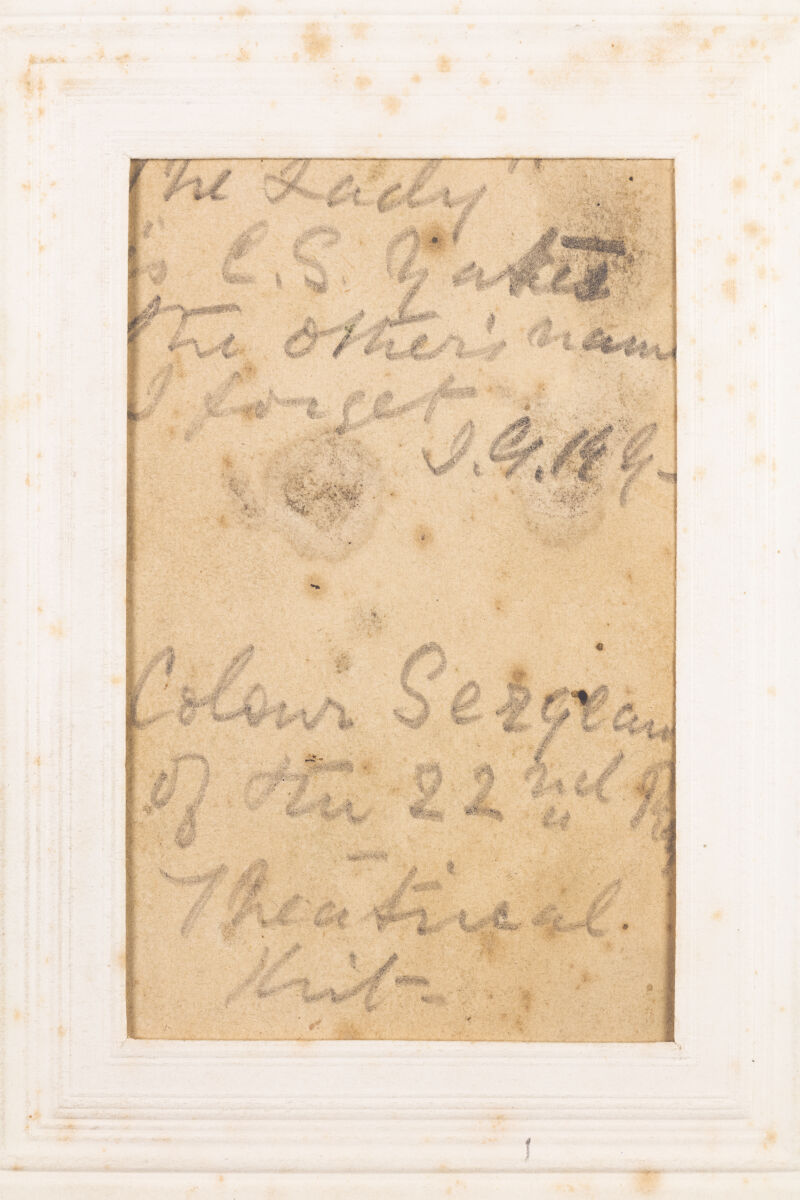 The Lady"
is C. S. Yates
the other's name
I forget
Colour Sergean
of the 22nd
Theatrical
Kit-